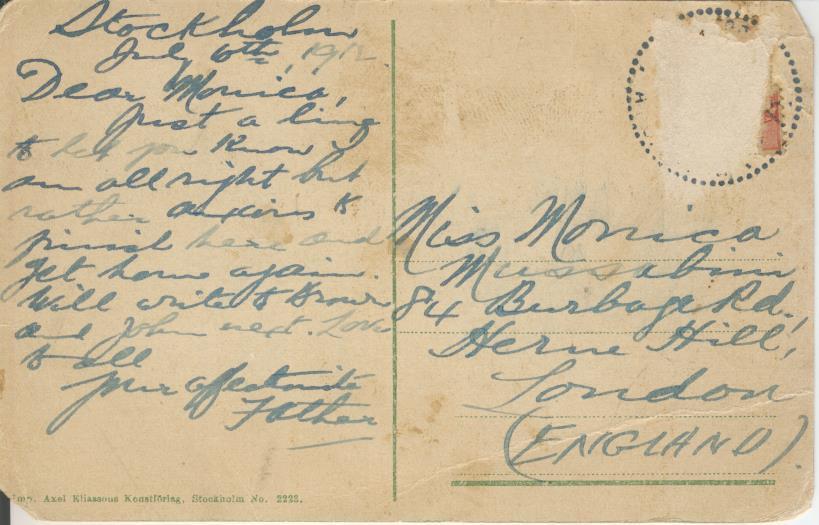 Stockholm
July 6th, 1912.
Dear Monica,
Just a line
to let you know I
am all right but
rather anxious to
finish here and
get home again.
Will write to Brown
and John next. Love
to all
your affectionate
Father
Miss Monica
Mussabini
84 Burbage Rd.,
Herne Hill,
London
(ENGLAND).
Imp. Axel Eliassons Konstförlag, Stockholm No. 2222.